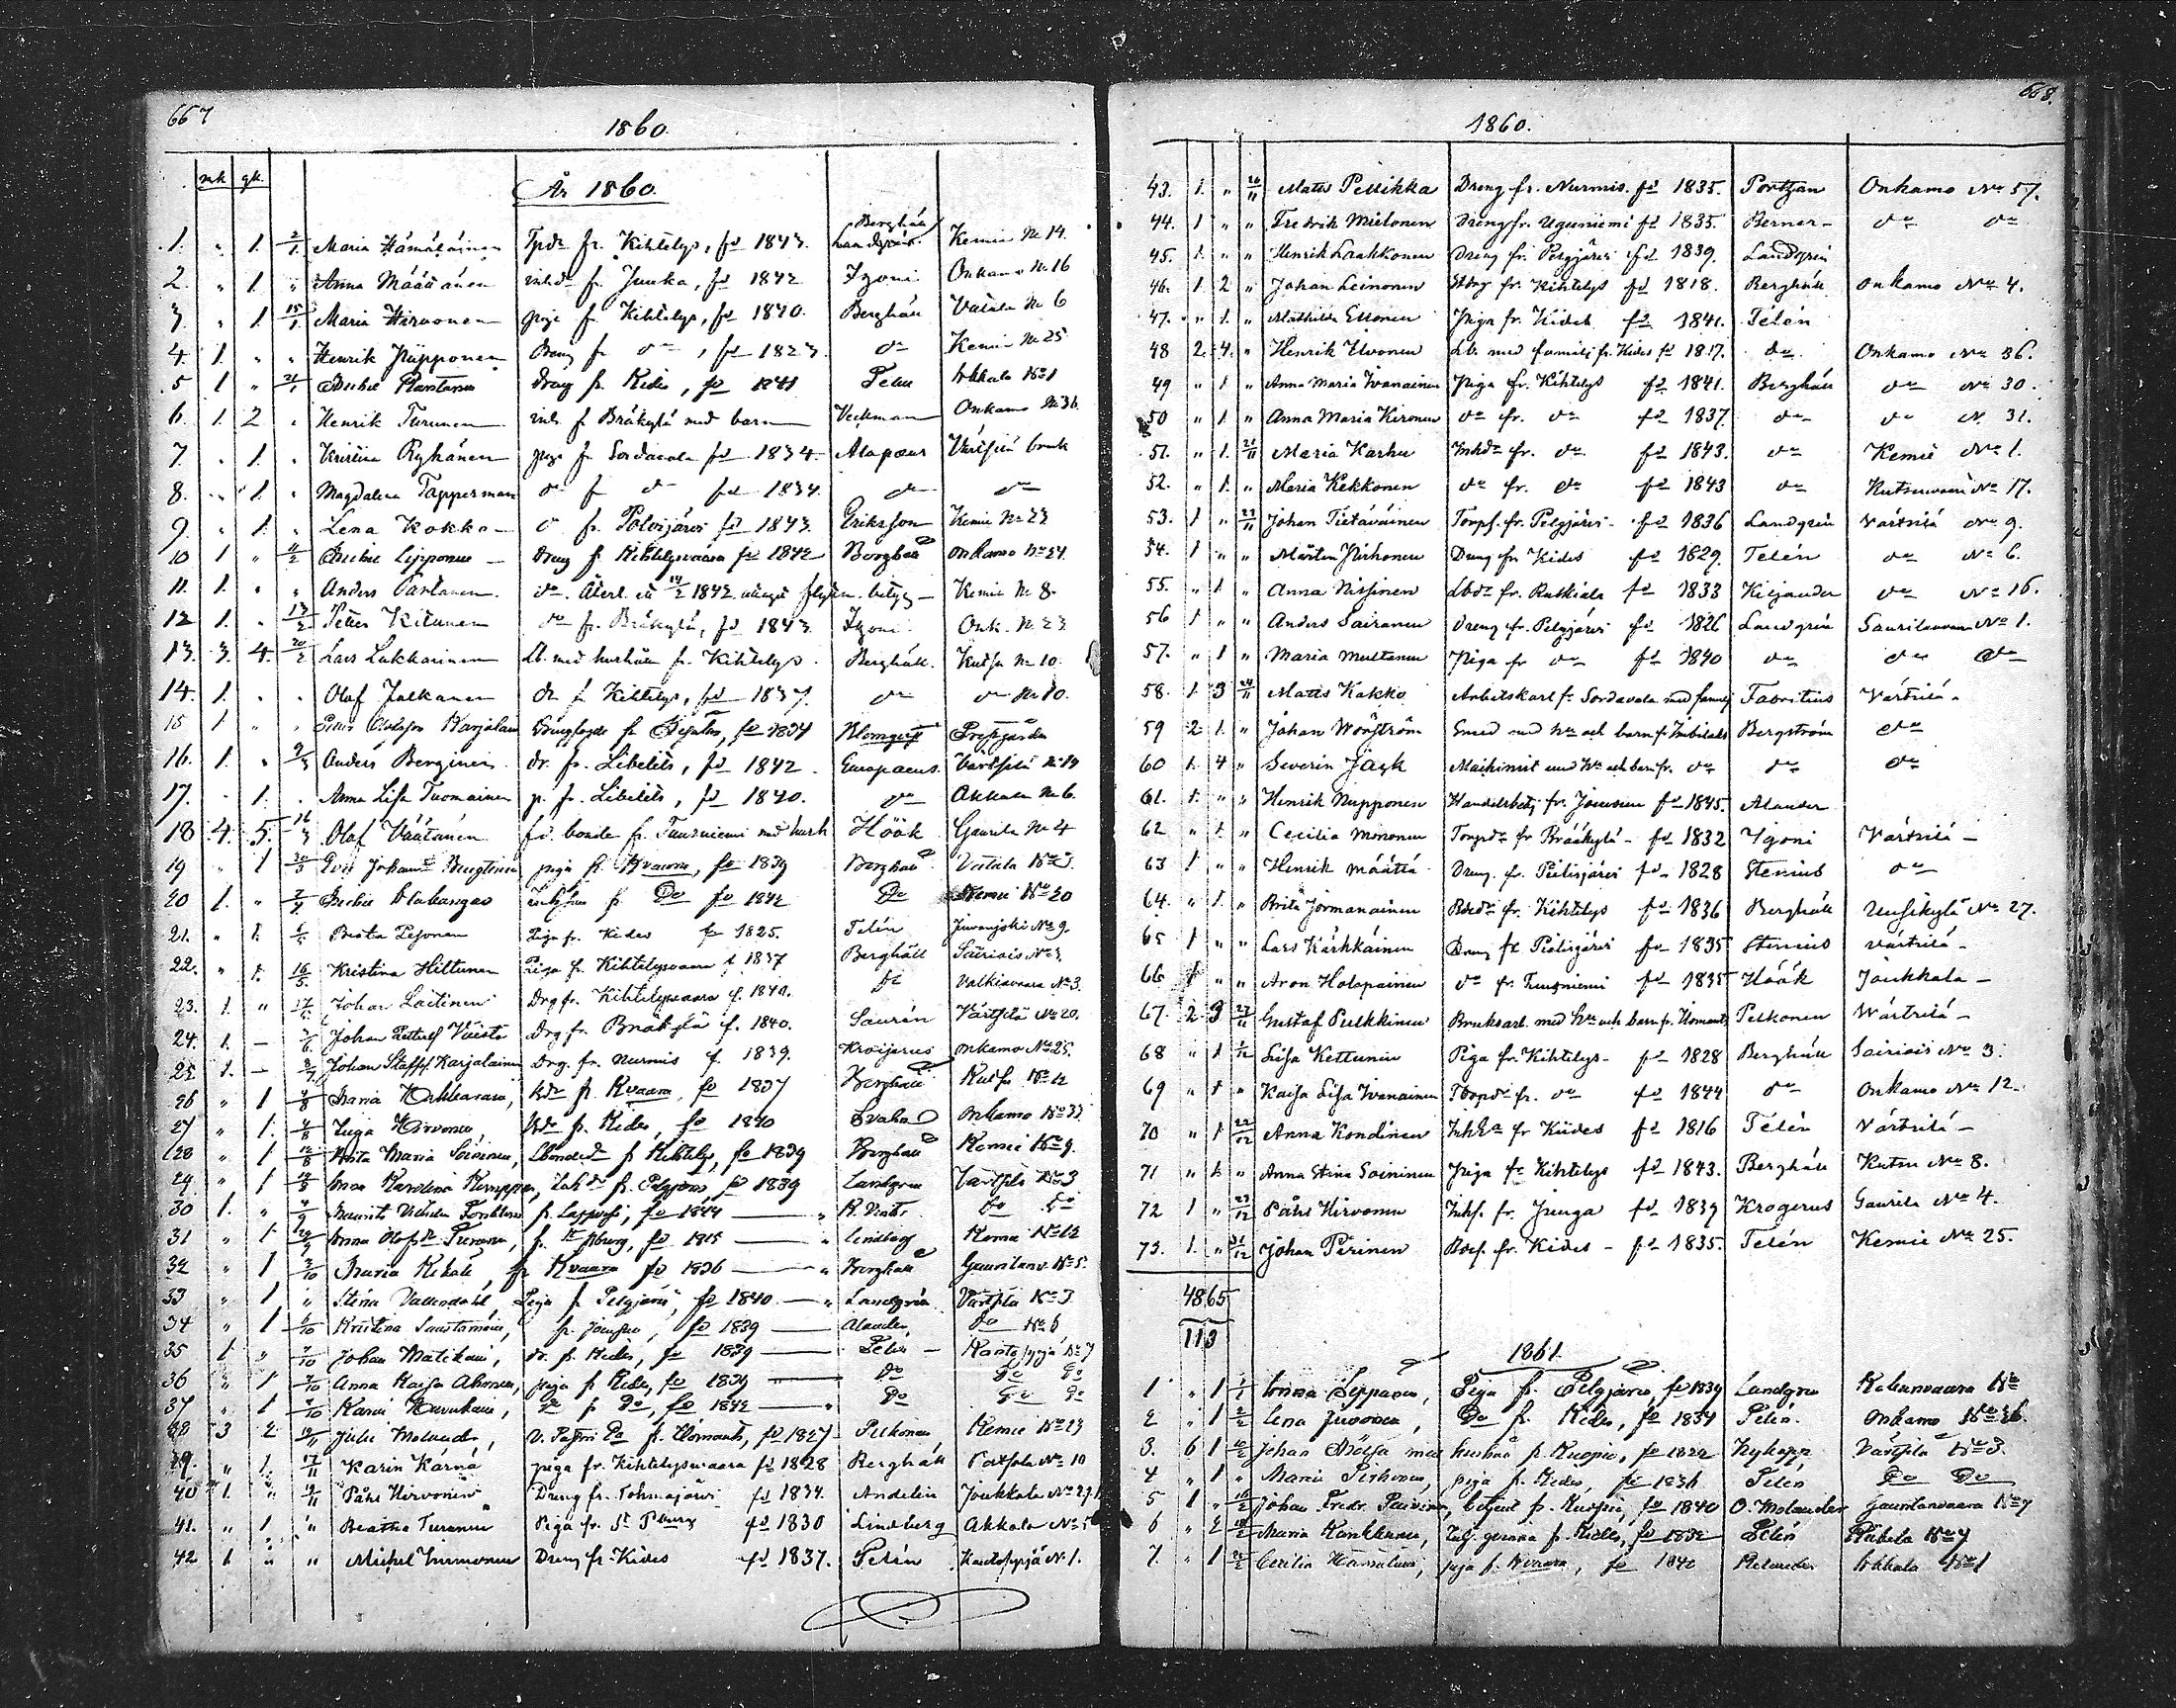 667
1860.
mk gk.
År 1860.
1. " 1. 2/1. Maria Hämäläinen Tpdr fr. Kihtelys, fd 1843. Berghäll Landgren. Kemie No 14.
2. " 1. " Anna Määttänen inhdr fr. Juuka, fd 1842 Igoni Onkamo No 16
3. " 1. 15/1. Maria Hirvonen piga fr. Kihtelys, fd 1840. Berghäll Vatala No 6
4. 1. " " Henrik Piipponen Dreng fr do, fd 1823. do Kemie No 25
5 1 " 21/1 Michel Rantanen dreng fr. Kides, fd 1841 Telen Akkala No 1
6. 1. 2 " Henrik Turunen inh. fr Bräkylä med barn Veckman Onkamo No 36.
7. " 1. " Kristina Ryhänen piga fr Sordavala fd 1834. Alopæus Värtsilä bruk
8. " 1. " Magdalena Tapperman do fr do fd 1834. do do
9. " 1. " Lena Kokko do fr. Polvijärvi fd 1843. Eriksson Kemie No 23
10 1 " 4/2 Michel Lipponen dreng fr Kihtelysvaara fd 1842 Berghäll Onkamo No 54.
11. 1. " " Anders Partanen. do. Återl. ett 14/2 1842 flyttn. betyg Kemie No 8.
12 1. " 13/2 Petter Kitunen do fr. Bräkylä, fd 1843. Igoni Onk. No 23
13. 3. 4. 20/2 Lars Lukkarinen Lb. med hushåll fr. Kihtelys. Berghäll. Kutsu No 10.
14. 1. " " Olof Jalkanen dr fr Kihtelys, fd 1837. do do No 10.
15 1 " " Petter Olofsson Karjalainen fd 1834 Blomqvist Prestgården
16. 1. " 9/3 Anders Berginen dr. fr. Libelits, fd 1842. Europaeus. Värtsilä No 14
17. " 1. " Anna Lisa Tuomainen p. fr. Libelits, fd 1840. do Akkala No 6.
18 4. 5. 16/3 Olof Väätänen fd. bonde fr. Tuusniemi med hush Höök Gaurila No 4
19 " 1 30/3 Eva Johansdr piga fr Kvaara, fd 1839 Berghäll Vatala No 3.
20 1. " 7/4 Michel Makangas Inhson fr Do fd 1842 Do Kemie No 20
21. " 1. 6/5 Beata Pesonen Piga fr. Kides fd 1825. Telén Juvanjoki No 9.
22. " 1. 16/5. Kristina Hiltunen Piga fr. Kihtelysvaara f. 1837 Berghäll Säiriais No 3.
23. 1. " 17/5. Johan Laitinen Drg fr. Kihtelysvaara f. 1840. do Valkiavaara No 3.
24. 1. — 3/6. Johan Pettersf Väistö Drg. fr. Bräkylä f. 1840. Saurén Värtsilä No 20.
25 1. — 3/7. Johan Staffsf. Karjalainen Drg. fr. Nurmis f. 1839. Krogerus Onkamo No 25.
26 " 1 4/8 Maria Hakkarain, Lbdr fr. Kvaara, fd 1837 Berghäll Kutsu No 12
27 " 1. 4/8 Kaija Hirvonen, Lbdr fr. Kides, fd 1840 Svahn Onkamo No 33
28 " 1 12/8 Anna Maria Soininen, Lbondedr fr Kihtelys, fd 1839 Berghäll Kemie No 9.
29 " 1 12/8 Anna Karolina Kemppai, Inhdr fr. Pelgjärvi, fd 1839 Landgren Värtsilä No 3
30 1. " 4/9 Maurits Vilhelm Forsblom fr. Lappvesi, fd 1844 — Do Do
31 " 1 20/9 Anna Olofsdr Turunen, fr. St Pburg, fd 1815 — Lindberg Kemie No 12
32 " 1 2/10 Maria Kekäle, fr Kvaara fd 1836 — Berghäll Gauritsv. No 5.
33 " 1 " Stina Vallendahl, Piga fr Pelgjärvi, fd 1840. — Landgrén Värtsilä No 3
34 " 1 5/10 Kristina Saastamoin, fr. Joensuu, fd 1839 — Alander, Do No 6
35 1 " 7/10 Johan Matikain, dr. fr. Kides, fd 1839 — Telén — Kantosyrjä No 7
36 " 1 7/10 Anna Kaisa Ahonen, piga fr Kides, fd 1839 — Do Do Do
37 " 1 7/10 Karin Havukain, Do fr Do, fd 1842 — Do Do Do
38 3 2 10/11 Julie Molander, v. Pastors Da fr. Ilomants, fd 1827 Pelkonen Kemie No 23
39. " 1. 17/11 Karin Kärnä piga fr. Kihtelysvaara fd 1828 Berghäll Potsola No 10
40 1. " 19/11 Påhl Hirvonen Dreng fr. Tohmajärvi fd 1834. Andelin Joukkola No 29.
41. " 1 " Beatha Turunen Piga fr. St Pburg fd 1830 Lindberg Akkala No 5
42 1 " " Michel Immonen Dreng fr. Kides fd 1837. Telén Kantosyrjä No 1.
668.
1860.
43. 1. " 26/11 Matts Pesikka Dreng fr. Nurmis. fd 1835. Portzan Onkamo No 57.
44. 1 " " Fredrik Mielonen Dreng fr. Uguniemi fd 1835. Berner- do do
45. 1. " " Henrik Laakkonen dreng fr. Pelgjärvi fd 1839. Landgrén
46. 1 2 " Johan Leinonen fr. Kihtelys fd 1818. Berghäll Onkamo No 4.
47. " 1. " Mathilda Eskonen Piga fr. Kides fd 1841. Telén
48 2. 4. " Henrik Ilvonen Lb. med familj fr. Kides fd 1817. do Onkamo No 36.
49 " 1 " Anna Maria Ivanainen Piga fr. Kihtelys fd 1841. Berghäll do No 30.
50 " 1 " Anna Maria Kironen do fr. do fd 1837. do do N. 31.
51. " 1. 21/11 Maria Karhu Inhdr fr. do fd 1843. do Kemie No 1.
52. " 1. " Maria Kekkonen do fr. do fd 1843 do Kutsuvaara No 17.
53. 1 " 23/11 Johan Tietäväinen Torpf. fr. Pelgjärvi. fd 1836 Landgrén Värtsilä No 9.
54. 1 " " Mårten Pirhonen Dreng fr. Kides fd 1829. Telén do No 6.
55. " 1 " Anna Nissinen Lbdr fr. Ruskiala fd 1833 Kiljander do No 16.
56 1 " " Anders Sairanen Dreng fr. Pelgjärvi fd 1826 Landgrén Saurilanvaara No 1.
57. " 1 " Maria Multanen Piga fr do fd 1840 do do do
58. 1. 3 24/11 Matts Kakko Arbetskarl fr Sordavala med familj Fabritius Värtsilä.
59 2 1. " Johan Wörström Smed med hu och barn fr. Imbilaks Bergström do
60 1. 4 " Severin Jack Maskinist med hu och barn fr. do do do
61. 1. " " Henrik Nupponen Handelsbetj. fr. Joensuu fd 1845. Alander
62 " 1. " Cecilia Mononen Torpdr fr Brääkylä - fd 1832 Igoni Värtsilä —
63 1 " " Henrik Määttä Dreng. fr. Pielisjärvi fd 1828 Stenius do
64. " 1. " Brita Jormanainen Bdr fr. Kihtelys fd 1836 Berghäll Uusikylä No 27.
65 1 " " Lars Kärkkäinen Dreng fr. Pielisjärvi fd 1835 Stenius Värtsilä -
66 1 " " Aron Holopainen do fr. Tuusniemi fd 1835 Höök Joukkola —
67. 2 3 27/11 Gustaf Pulkkinen Bruksarb. med hu och barn fr. Ilomants Pelkonen Värtsilä —
68 " 1 1/12 Lisa Kettunen Piga fr. Kihtelys - fd 1828 Berghäll Sairiais No 3.
69 " 1 " Kaisa Lisa Ivanainen Torpdr fr. do fd 1844 do Onkamo No 12.
70 " 1 22/12 Anna Kondinen fr Kides fd 1816 Telén Värtsilä —
71 " 1. " Anna Stina Soininen Piga fr Kihtelys fd 1843. Berghäll Kutsu No 8.
72 1 " 23/12 Påhl Hirvonen Inhs. fr. Juuga fd 1839 Krogerus Gaurila No 4.
73. 1. " 31/12 Johan Pirinen fr. Kides - fd 1835. Telén Kemie No 25.
48 65
113
1861.
1 " 1 1/1 Anna Seppänen, Piga fr. Pelgjärvi, fd 1839 Landgren Kakunvaara No
2 " 1 2/2 Lena Juvonen, Do fr. Kides, fd 1834 Telén. Onkamo No 36.
3. 6 1 10/2 Johan med hushåll fr. Kuopio, fd 1822 Nykopp Värtsilä No 3.
4 " 1 " Maria Pirhonen, piga fr. Kides, fd 1836 Telén Do Do
5 1 " 16/2 Johan Fredr. Päivinen, betjent fr. Kuopio, fd 1840 O. Molander Gauritanvaara No 7
6 " 2 18/2 Maria Kankkunen, fr. Kides, fd 1832 Telén No 7
7. " 1 24/2 Cecilia Hämäläin, piga fr. Kvaara, fd 1840 Akkala No 1